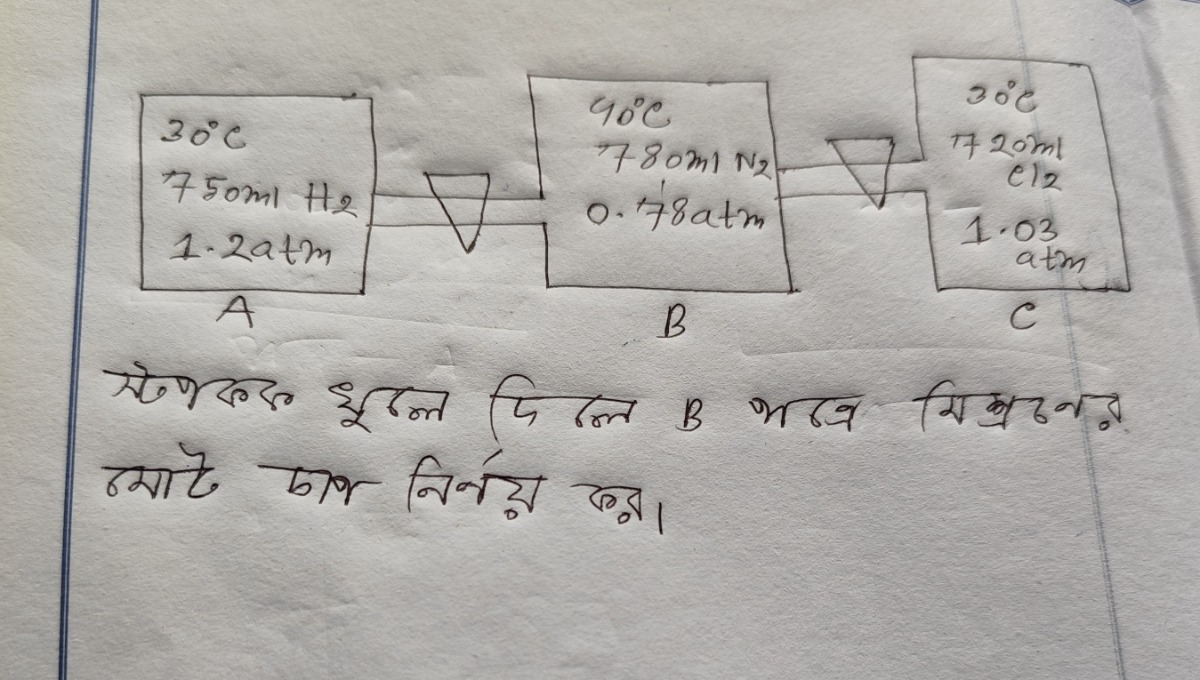 30°C
750ml H2
1.2atm
A
40°C
780ml N2
0.78atm
B
30°C
720ml
cl2
1.03
atm
C
স্টপকক খুলে দিলে B পাত্রে মিশ্রনের
মোট চাপ নির্নয় কর।